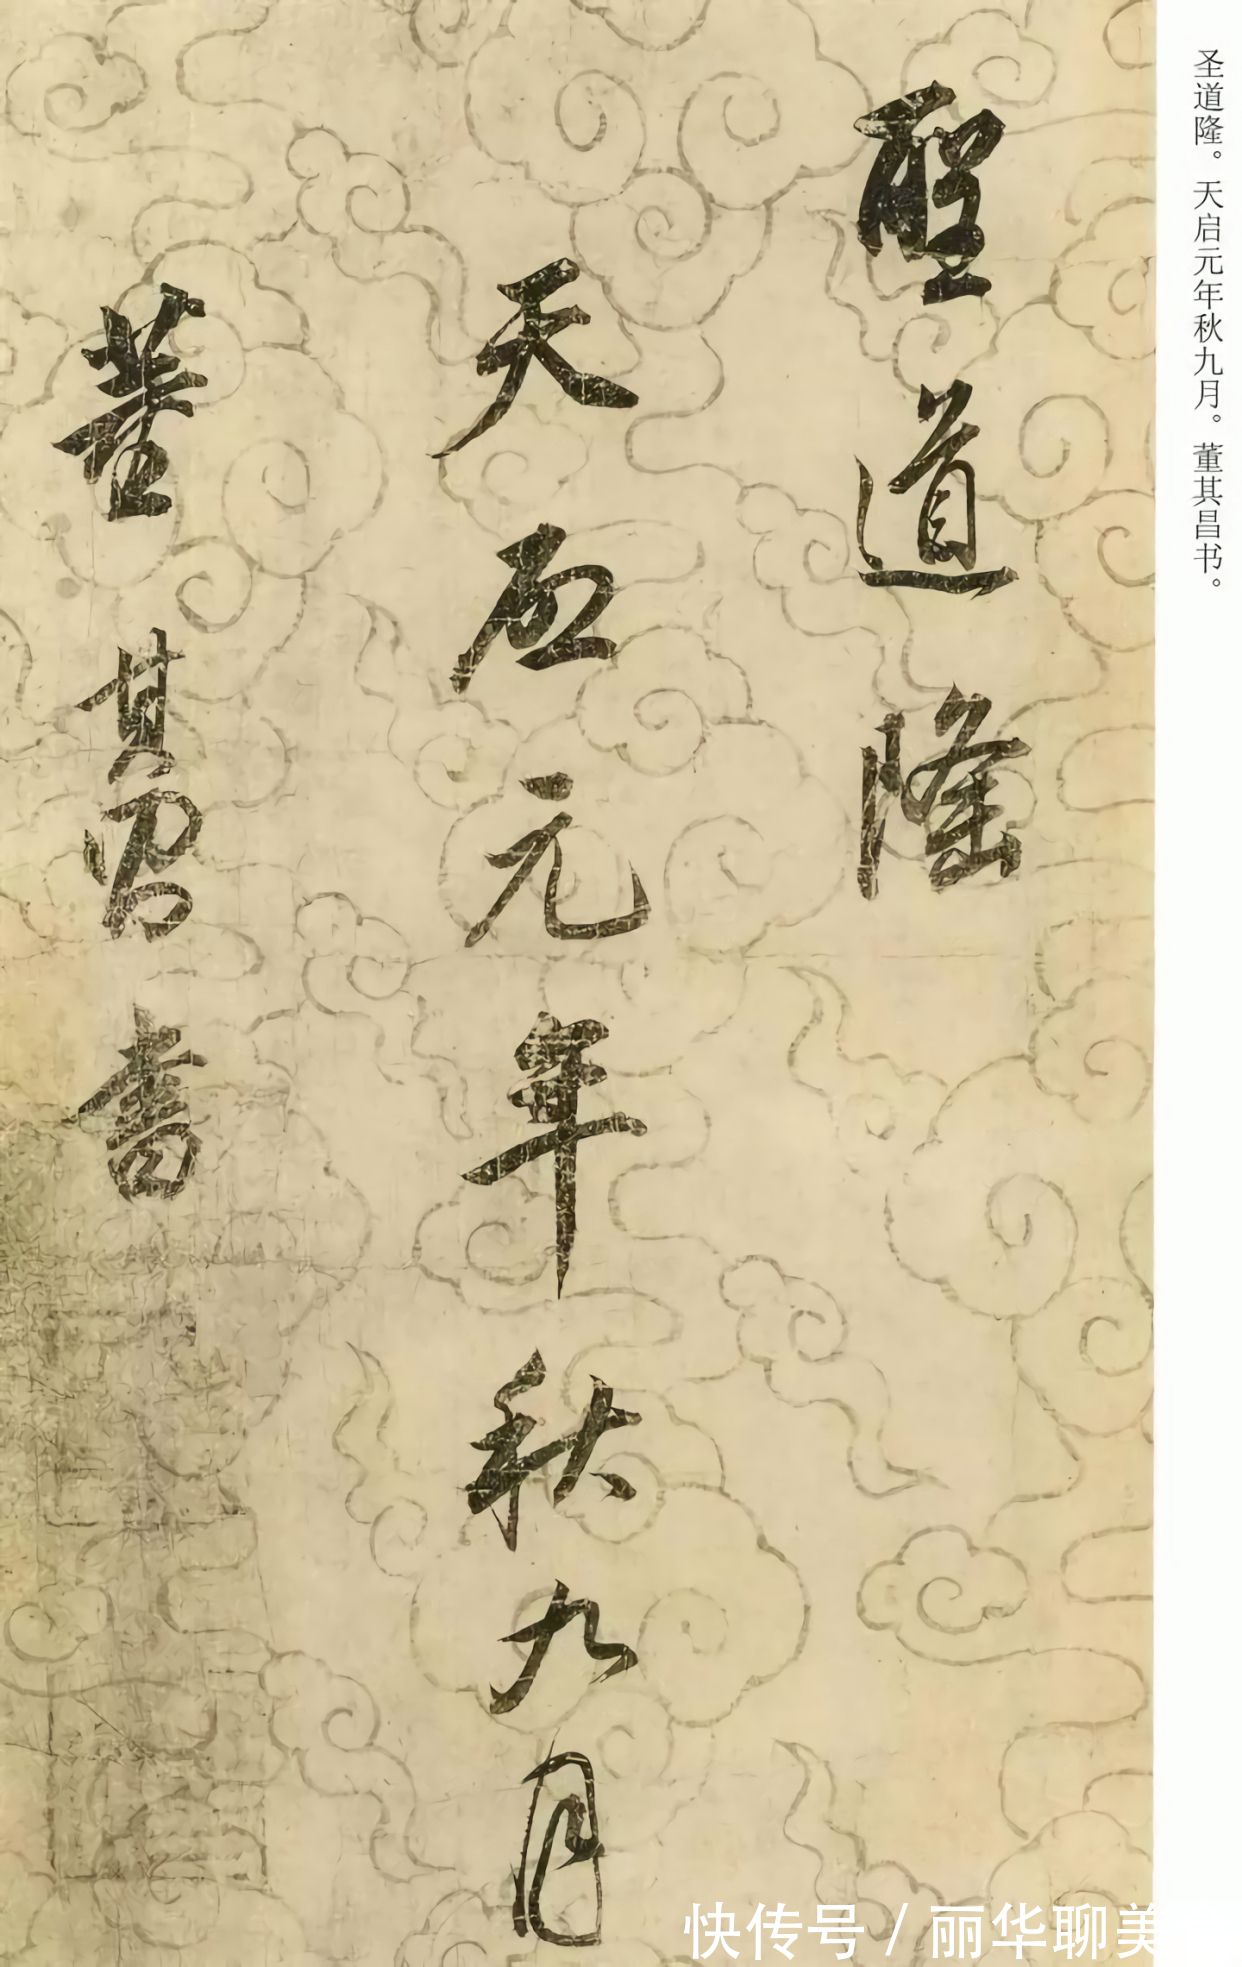 圣道隆。天启元年秋九月。董其昌书。
聖道隆
天启元年秋九月
董其昌書
快传号 / 丽华聊美